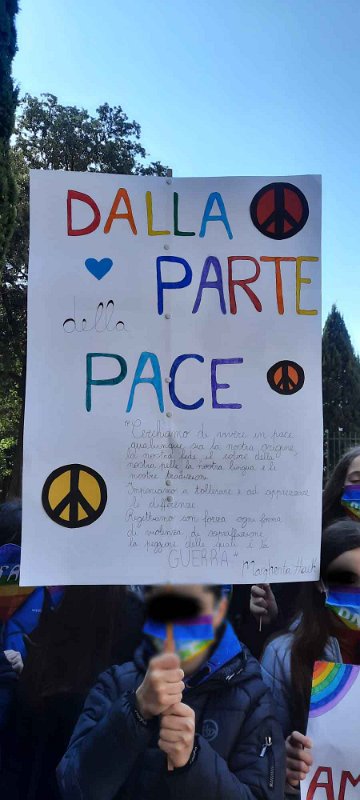 DALLA
PARTE
della
PACE
"Cerchiamo di vivere in pace
qualunque sia la nostra origine
la nostra fede il colore della
nostra pelle la nostra lingua e le
nostre tradizioni
Impariamo a tollerare e ad apprezzare
le differenze
Rigettiamo con forza ogni forma
di violenza di sopraffazione
la peggiore delle quali è la
GUERRA"
Margherita Hack
AM